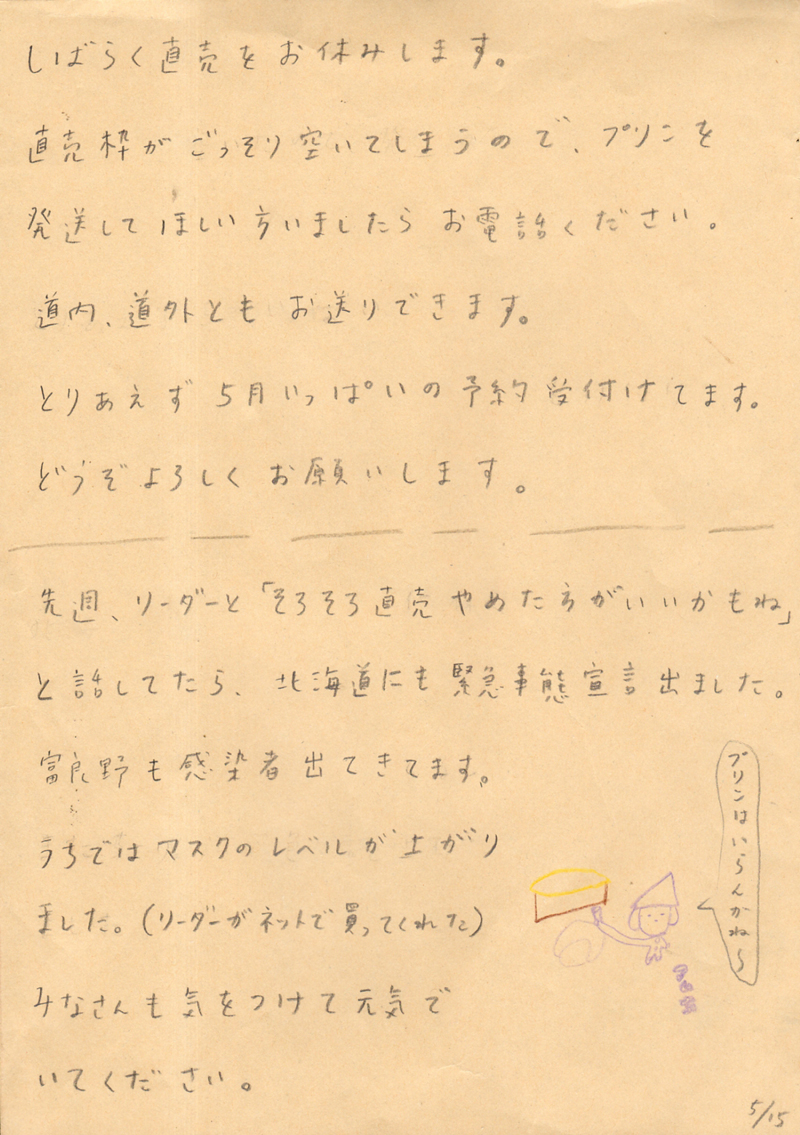 しばらく直売をお休みします。
直売枠がごっそり空いてしまうので、プリンを
発送してほしい方いましたらお電話ください。
道内、道外ともお送りできます。
とりあえず5月いっぱいの予約受付けてます。
どうぞよろしくお願いします。
先週、リーダーと「そろそろ直売やめた方がいいかもね」
と話してたら、北海道にも緊急事態宣言出ました。
富良野も感染者出てきてます。
うちではマスクのレベルが上がり
ました。(リーダーがネットで買ってくれた)
みなさんも気をつけて元気で
いてください。
プリンはいらんかね〜
5/15